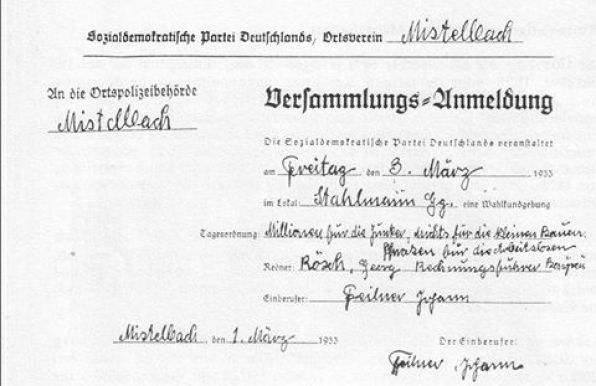 Sozialdemokratische Partei Deutschlands, Ortsverein Mistelbach
An die Ortspolizeibehörde
Mistelbach
Versammlungs-Anmeldung
Die Sozialdemokratische Partei Deutschlands veranstaltet
am Freitag den 3. März 1933
im Lokal Stahlmann Gg. eine Wahlkundgebung
Tagesordnung: Millionen für die Junker, nichts für die kleinen Bauern.
Phrasen für die Arbeitslosen
Redner: Rösch, Georg Rechnungsführer
Einberufer: Feilner Johann
Mistelbach, den 1. März 1933
Der Einberufer:
Feilner Johann